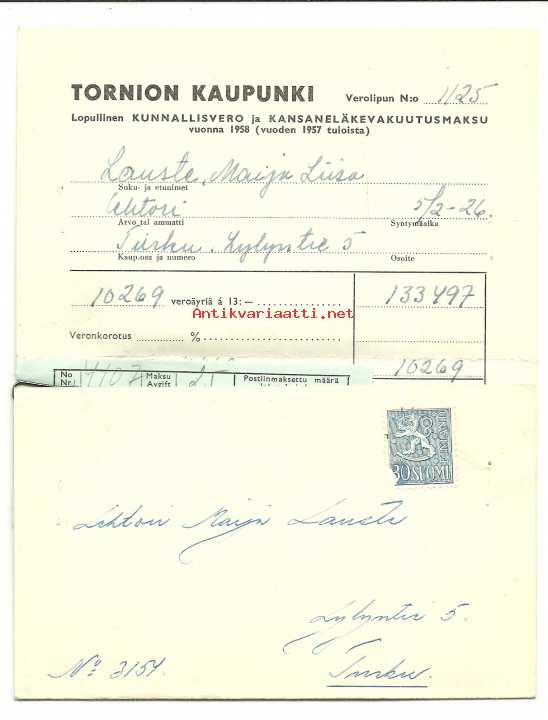 TORNION KAUPUNKI Verolipun N:o 1125
Lopullinen KUNNALLISVERO ja KANSANELÄKEVAKUUTUSMAKSU
vuonna 1958 (vuoden 1957 tuloista)
Lauste, Maija Liisa
Suku- ja etunimet
Lehtori 5/2-26.
Arvo tai ammatti Syntymäaika
Turku, Lylyntie 5
Kaup.osa ja numero Osoite
10269 veroäyriä á 13:— 133497
Antikvariaatti.net
Veronkorotus %
10269
No Maksu Postiinmaksettu määrä
Nr. Avgift
30 SUOMI
Lehtori Maija Lauste
Lylyntie 5.
No 3154. Turku.